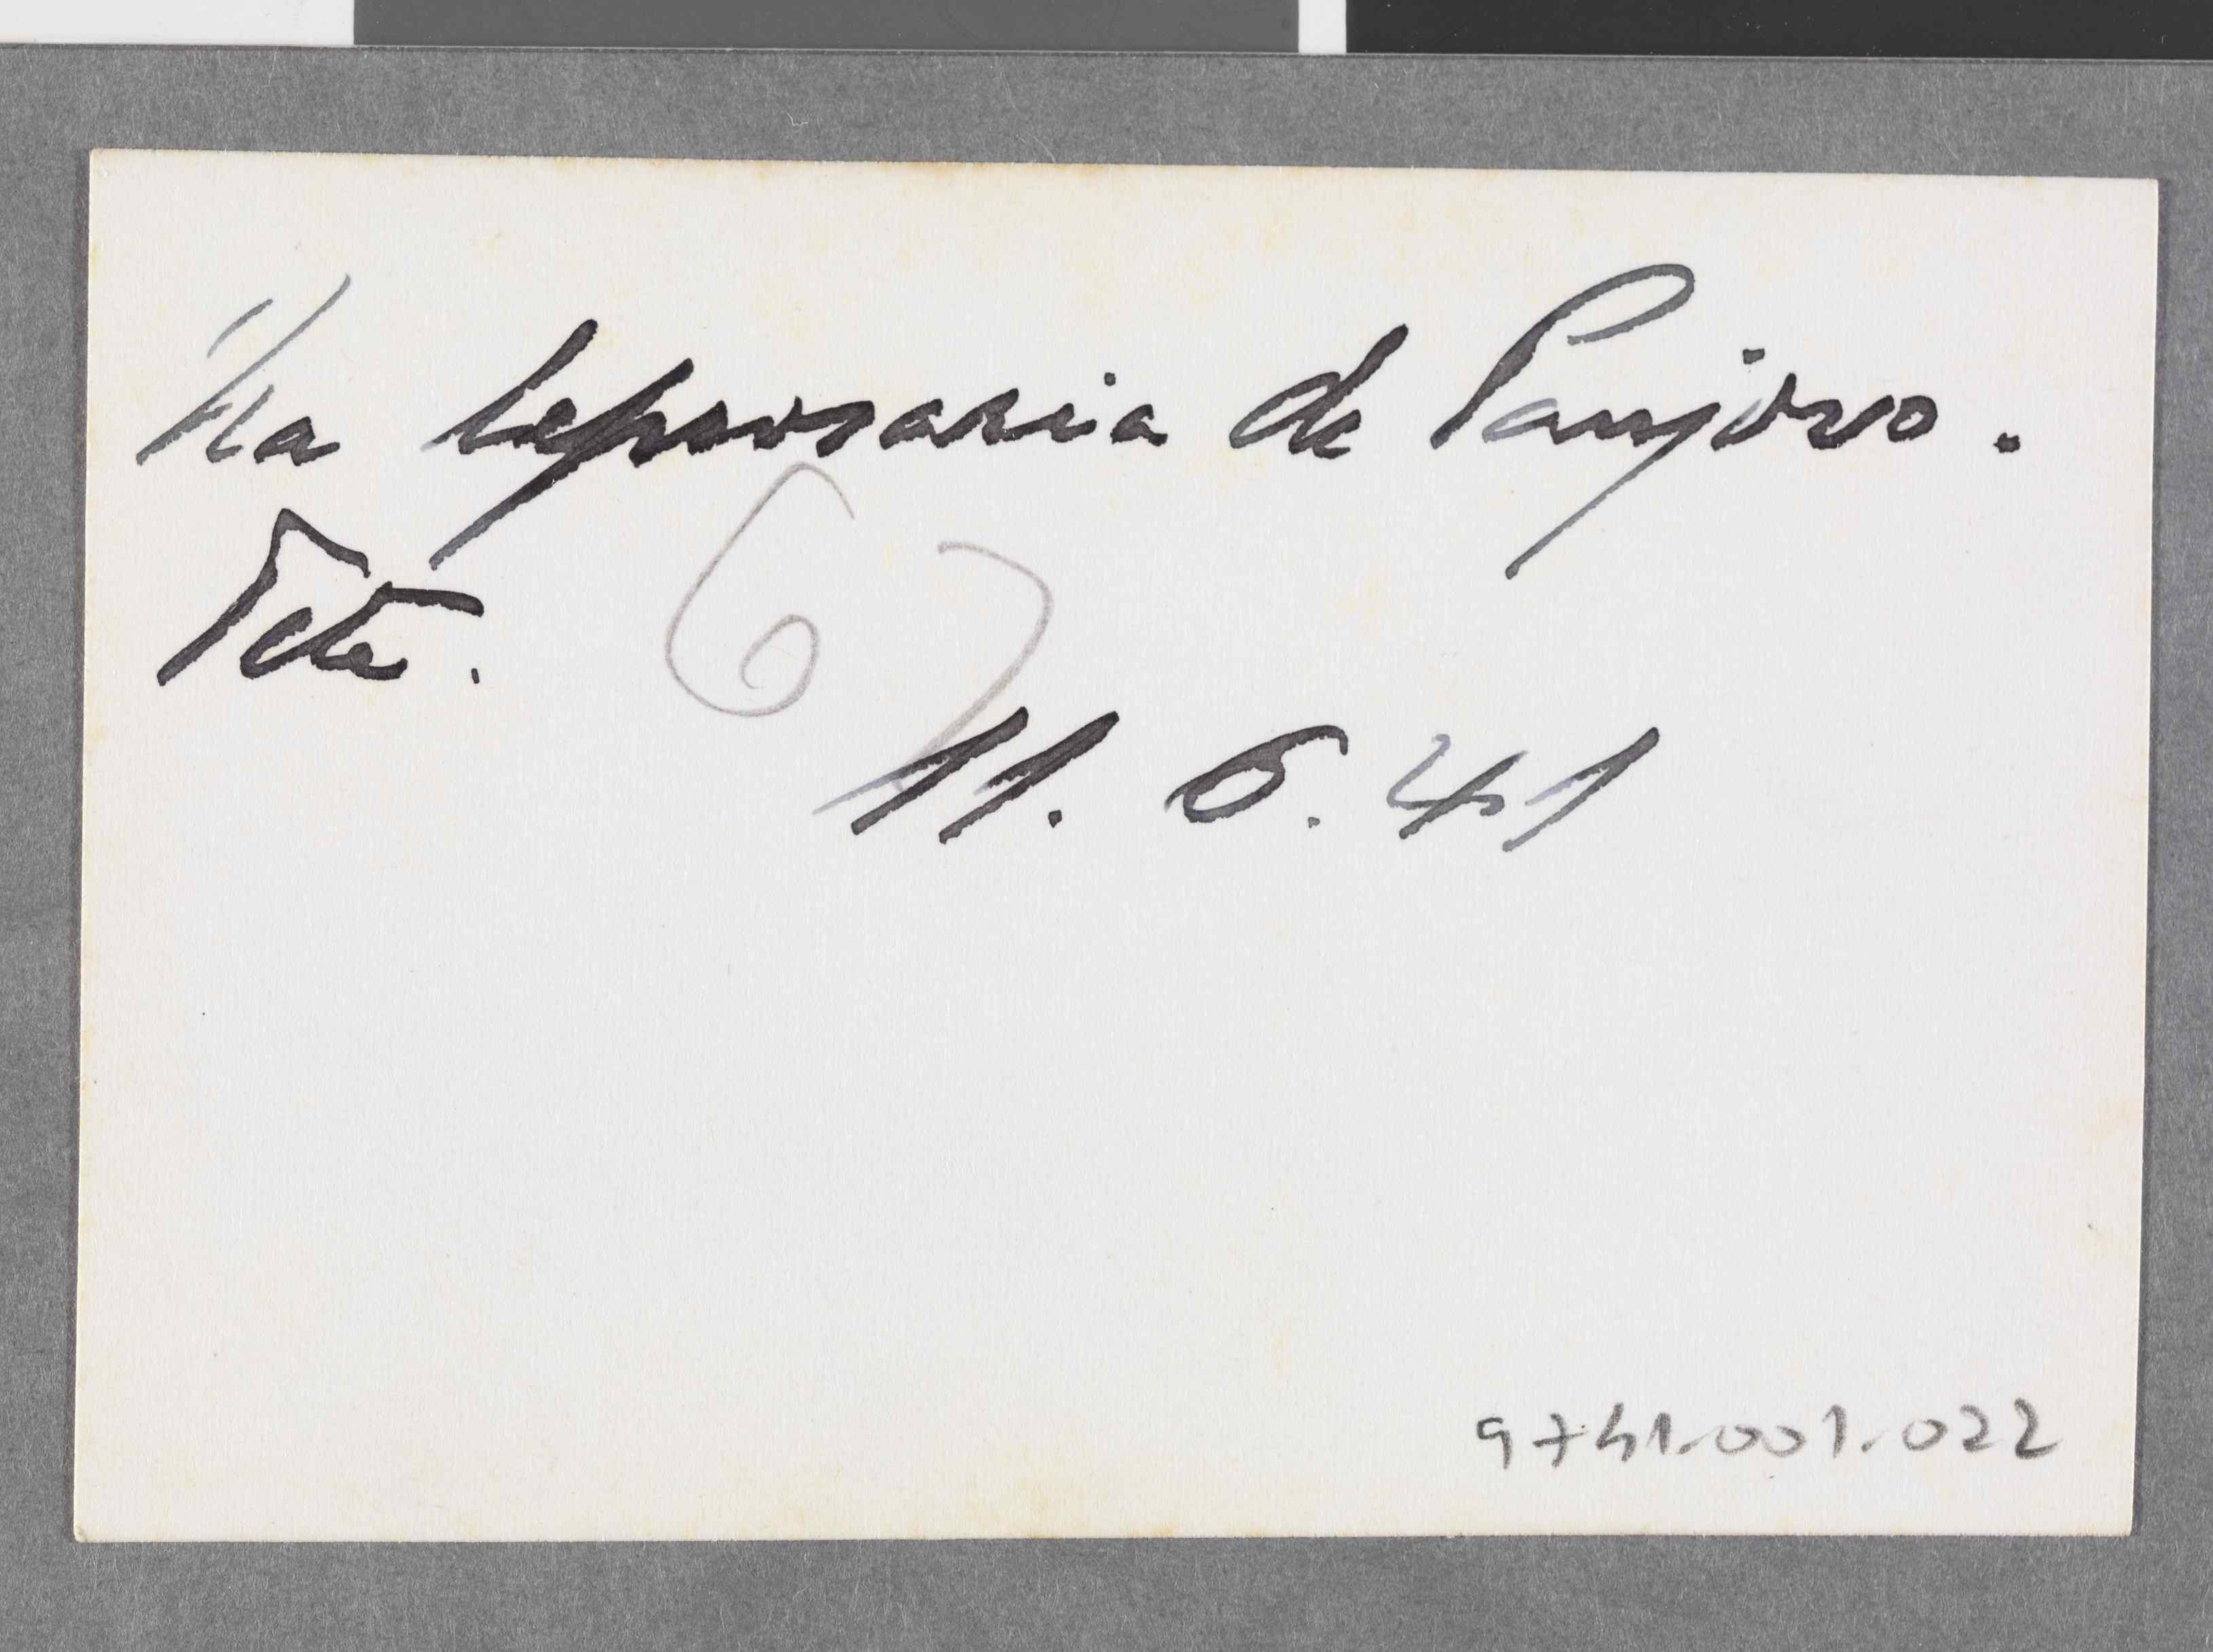 Na leprosaria de Panjovo.
Tete.
67
11. 6. 41
9741.001.022